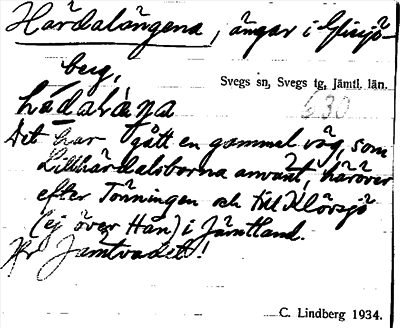 Härdalängena, ängar i Glissjö-
berg,
Svegs sn, Svegs tg, Jämtl. län.
630
Dit har gått en gammal väg, som
Lillhärdalsborna använt, häröver
efter Tönningen och till Klövsjö
(ej över Han) i Jämtland.
Jfr Jämtvadet!
C. Lindberg 1934.